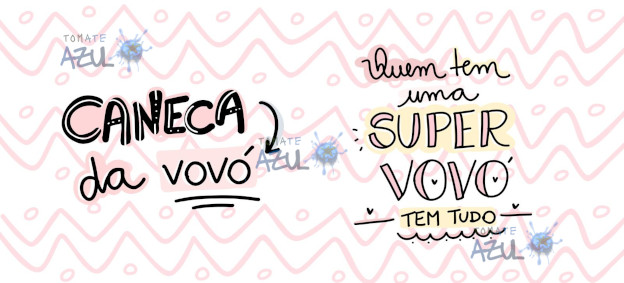 TOMATE
AZUL
CANECA
da VOVÓ
TOMATE
AZUL
Quem tem
uma
SUPER
VOVÓ
TEM TUDO
TOMATE
AZUL